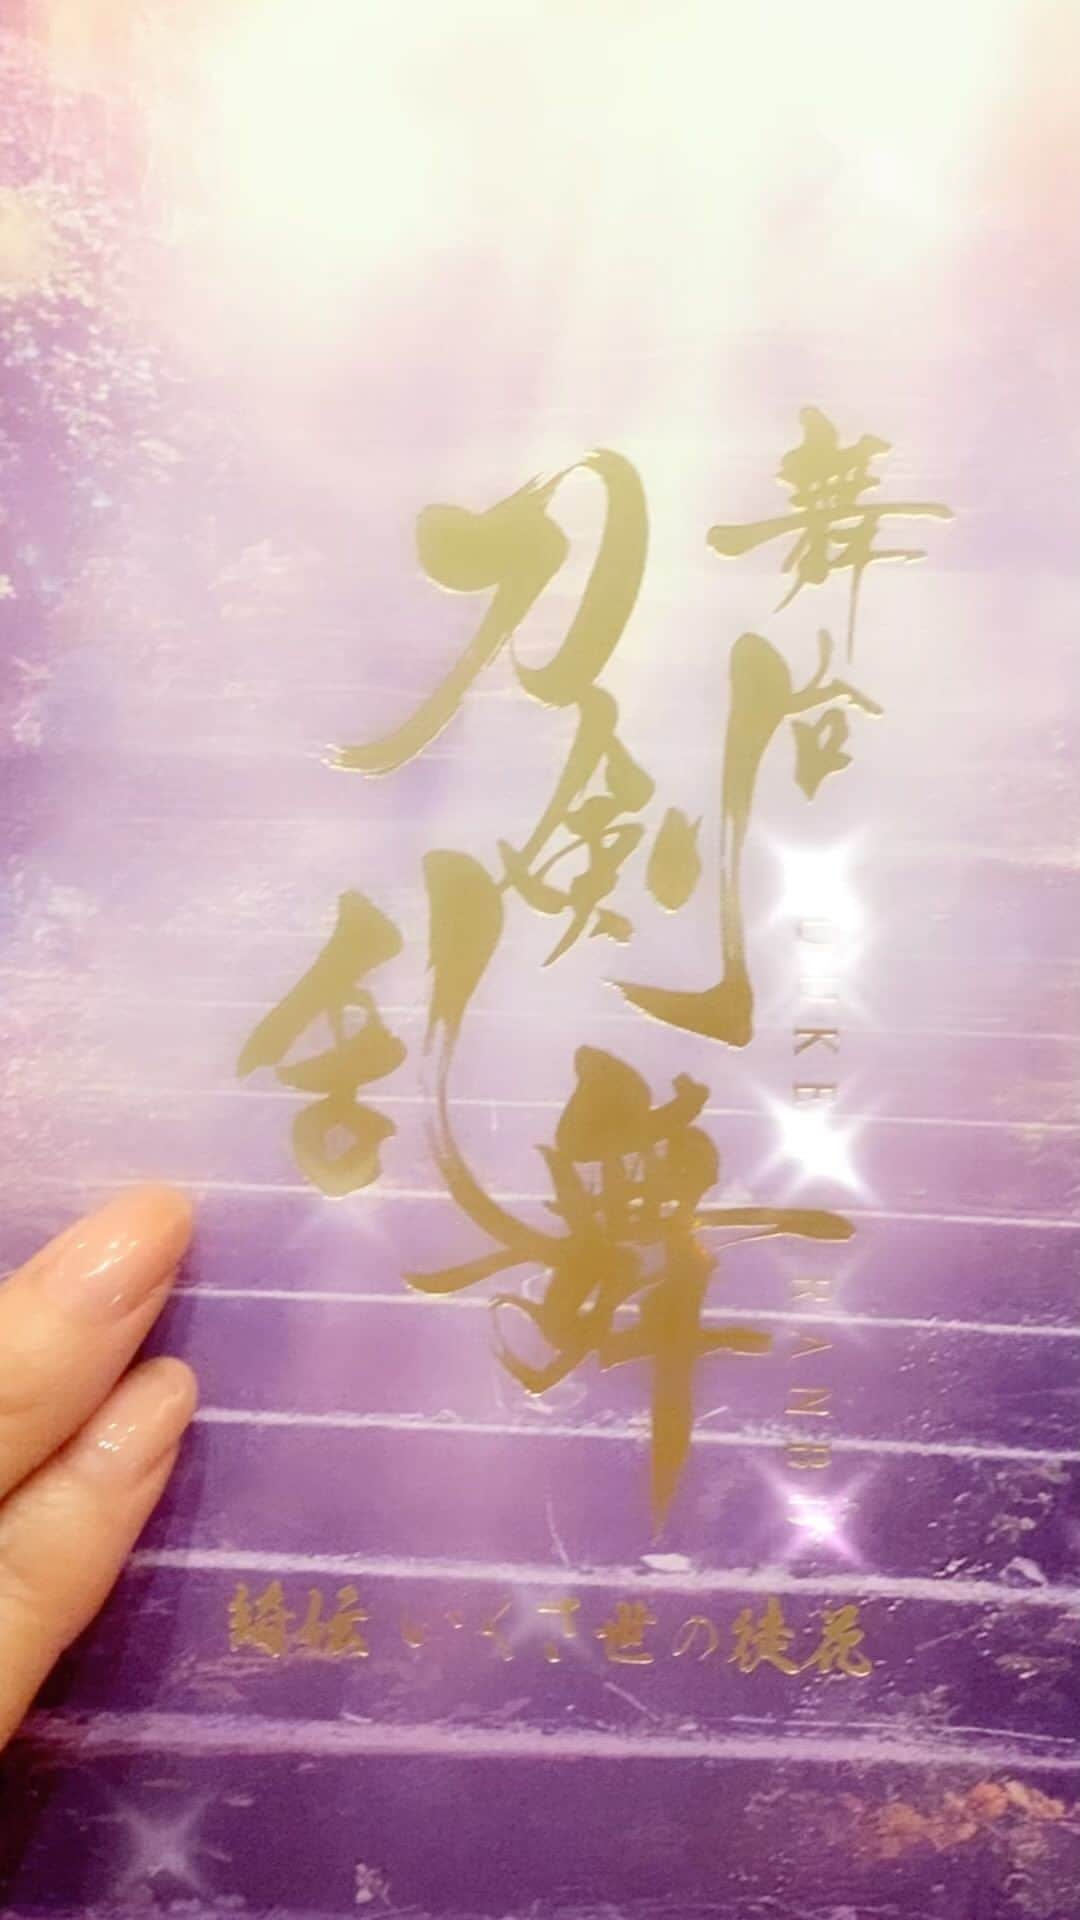 舞台
刀剣乱舞
TOUKEN RANBU
綺伝 いくさ世の徒花